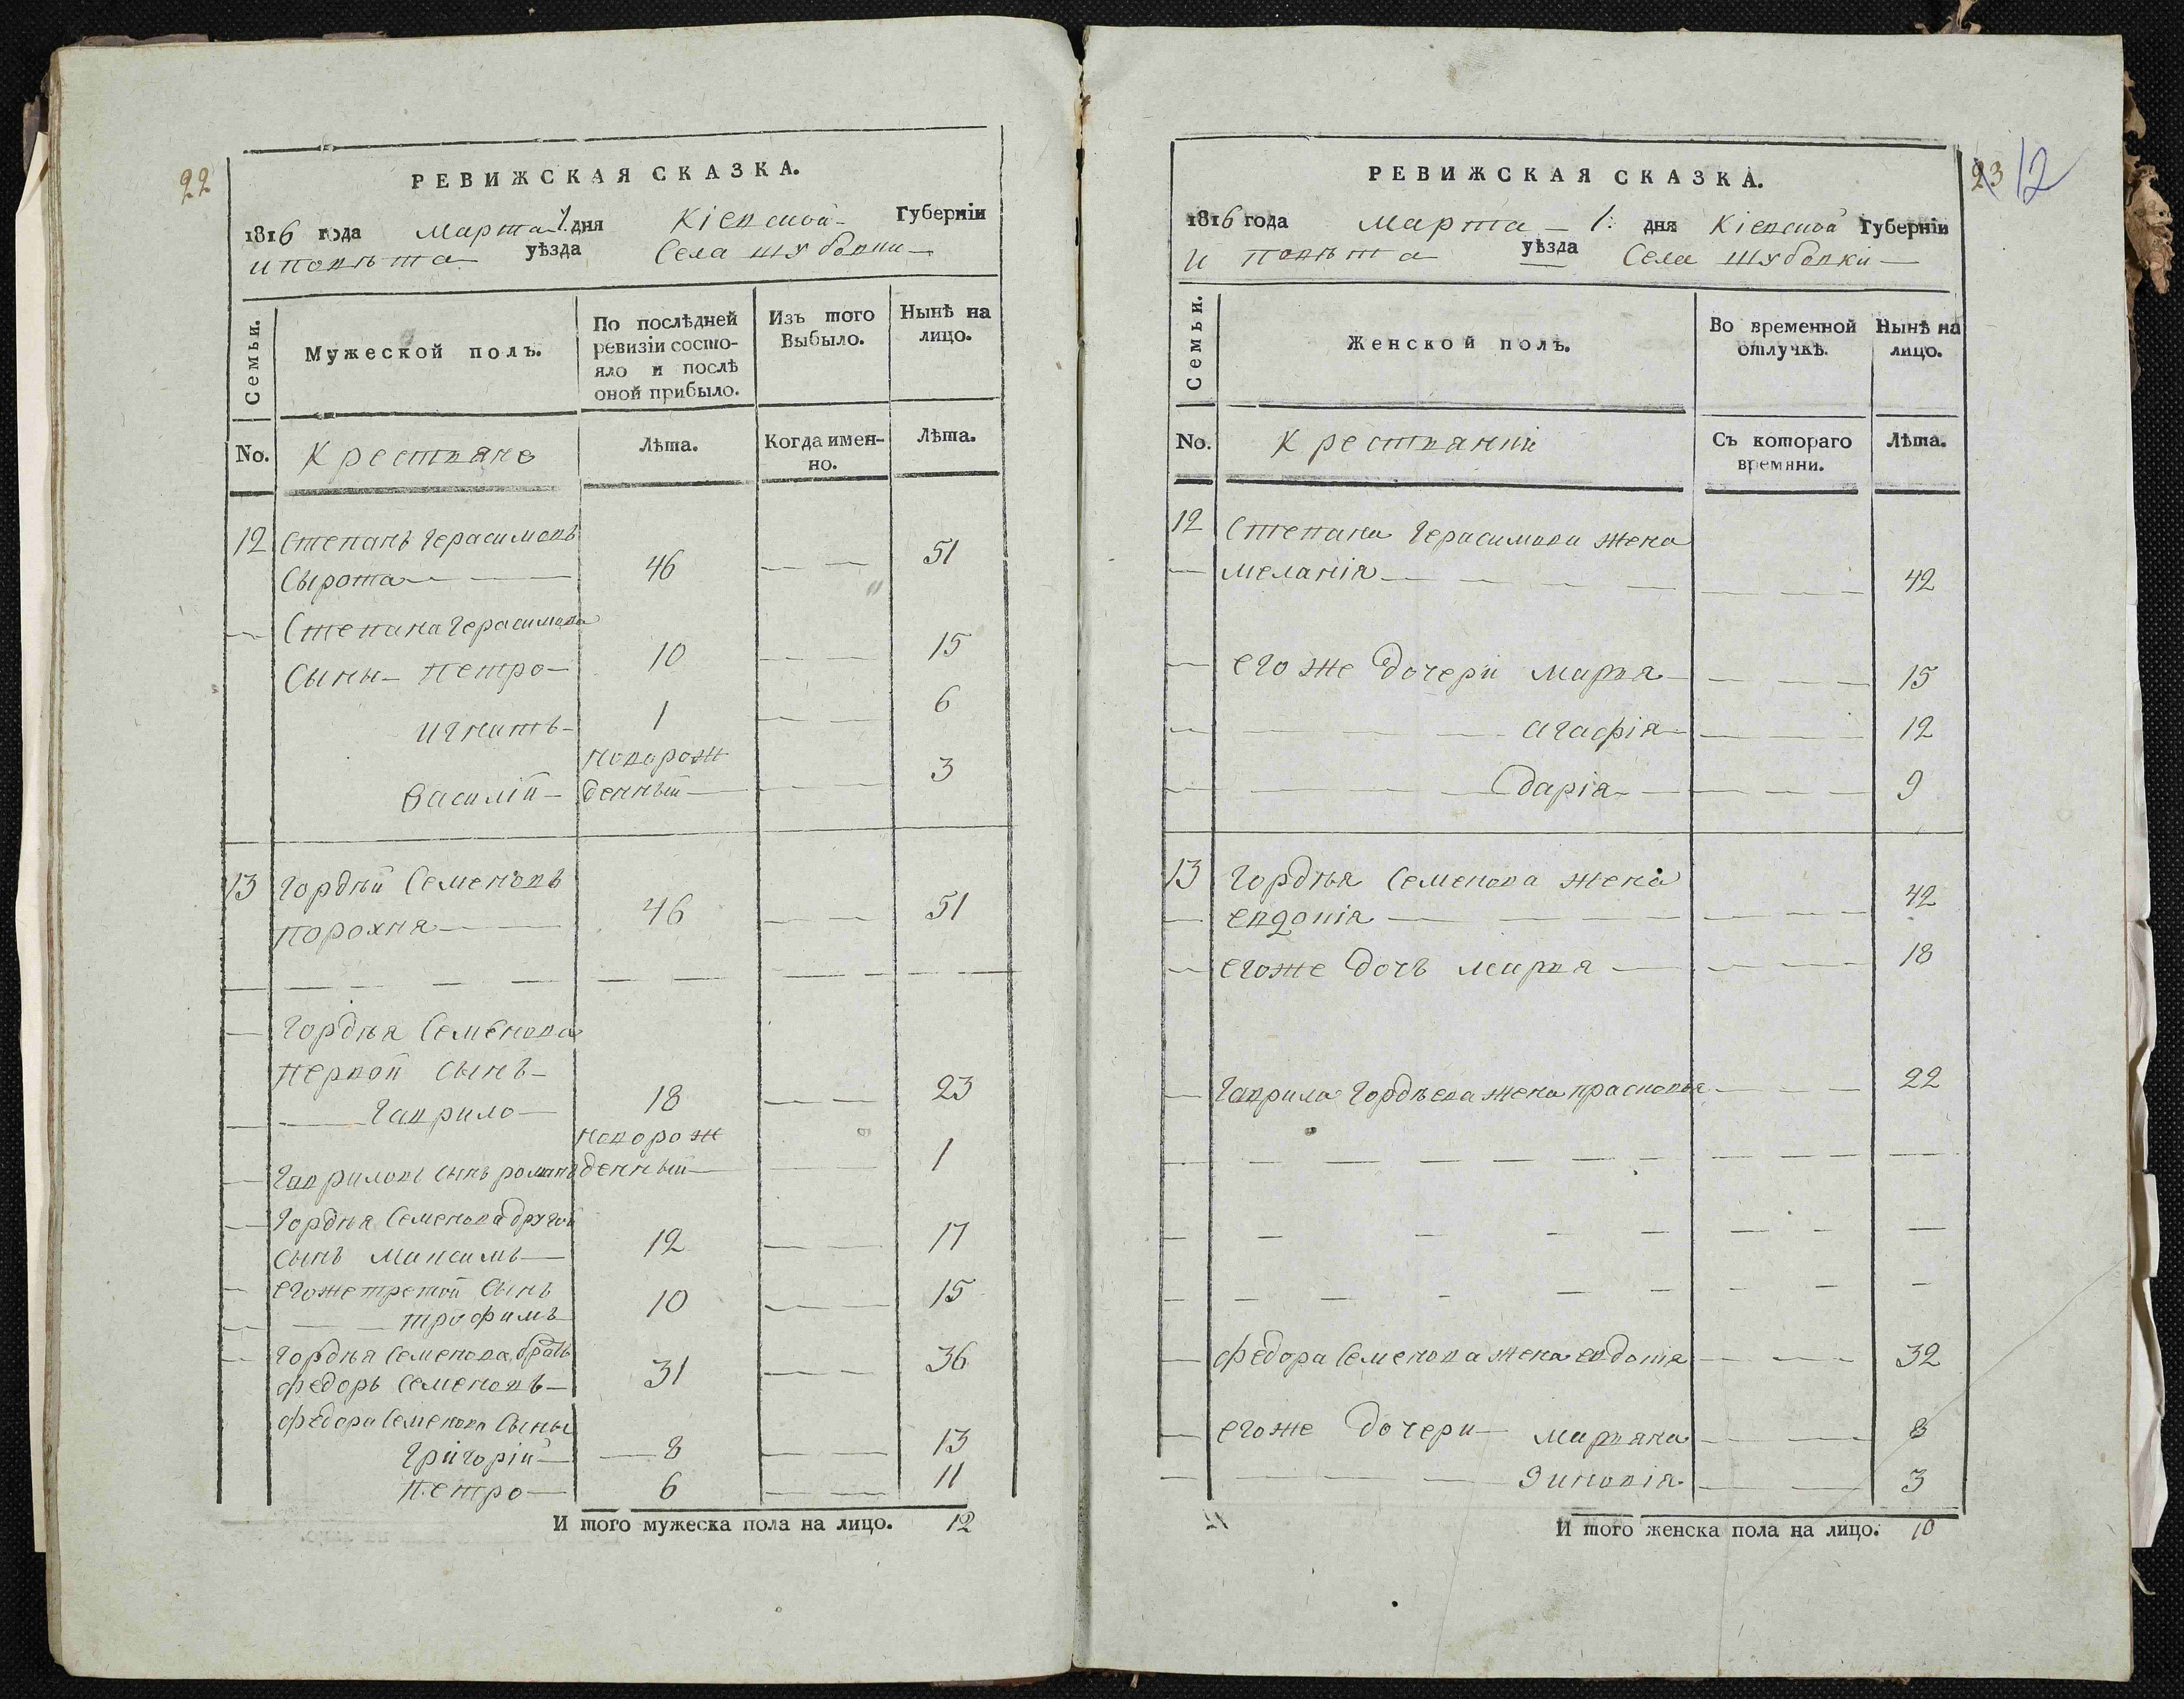 22
РЕВИЖСКАЯ СКАЗКА.
1816 года Марта 1. дня Кіевской Губерніи
и повѣта уѣзда Села Шубовки
Семьи.
Мужеской полъ.
По послѣдней ревизіи состо-
яло и послѣ
оной прибыло.
Изъ того
Выбыло.
Нынѣ на
лицо.
No.
Крестьяне
Лѣта.
Когда имен-
но.
Лѣта.
12 Степанъ Герасимовъ
Сырота 46 51
Степана Герасимова
Сыны Петро 10 15
Игнатъ 1 6
новорож
Василій денный 3
13 Гордѣй Семеновъ
Порохня 46 51
Гордѣя Семенова
первой Сынъ
Гаврило 18 23
новорож
Гавриловъ Сынъ романъ денный 1
Гордѣя Семенова другой
Сынъ Максимъ 12 17
егоже третій Сынъ
трофимъ 10 15
Гордѣя Семенова братъ
федоръ Семеновъ 31 36
федора Семенова Сыны
Григорій 8 13
Петро 6 11
И того мужеска пола на лицо. 12
23 12
РЕВИЖСКАЯ СКАЗКА.
1816 года Марта 1: дня Кіевской Губерніи
и повѣта уѣзда Села Шубовки
Семьи.
Женской полъ.
Во временной
отлучкѣ.
Нынѣ на
лицо.
No.
Крестьянки
Съ котораго
времяни.
Лѣта.
12 Степана Герасимова жена
меланія 42
его же дочери марья 15
агафія 12
дарія 9
13 Гордѣя Семенова жена
евдокія 42
егоже дочь марья 18
Гаврила Гордѣева жена прасковья 22
федора Семенова жена евдокія 32
егоже дочери марьяна 8
Зиновія 3
И того женска пола на лицо. 10